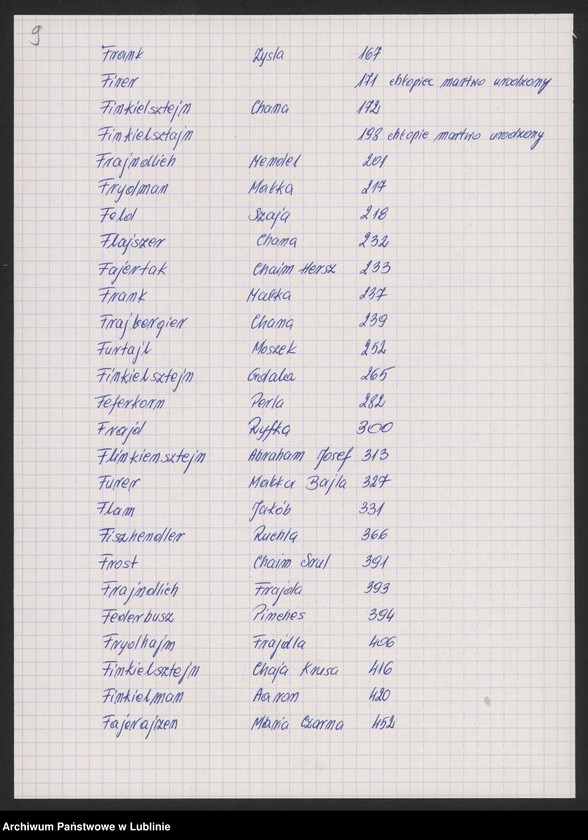 9
Frank Zysla 167
Firer 171 chłopiec martwo urodzony
Finkielsztejn Chana 172
Finkielsztajn 198 chłopie martwo urodzony
Frajndlich Mendel 201
Frydman Małka 217
Feld Szaja 218
Flajszer Chana 232
Fajertak Chaim Hersz 233
Frank Małka 237
Frajbergier Chana 239
Furtajl Moszek 252
Finkielsztejn Gdala 265
Feferkorn Perla 282
Frajd Ryfka 300
Flinkiensztejn Abraham Josef 313
Furer Małka Bajla 327
Flam Jakób 331
Fiszhendler Ruchla 366
Frost Chaim Srul 391
Frajndlich Frajda 393
Federbusz Pinches 394
Frydhajm Frajdla 406
Finkielsztejn Chaja Krusa 416
Finkielman Aaron 420
Fajerajzen Maria Czarna 452
Archiwum Państwowe w Lublinie